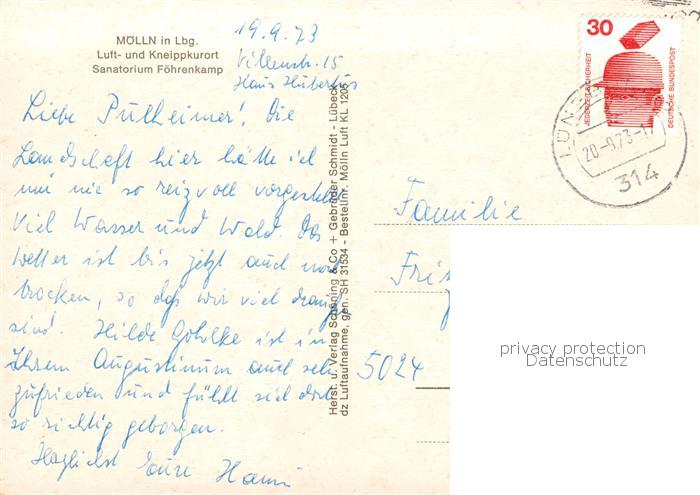 MÖLLN in Lbg.
Luft- und Kneippkurort
Sanatorium Föhrenkamp
19.9.73
Villenstr. 15
Haus Hubertus
Liebe Pulheimer! Die
Landschaft hier hätte ich
mir nie so reizvoll vorgestellt.
Viel Wasser und Wald. Das
Wetter ist bis jetzt auch noch
trocken, so daß wir viel draußen
sind. Hilde Gohlke ist in
Ihrem Augustinum auch sehr
zufrieden und fühlt sich dort
so richtig geborgen.
Herzlichst Eure Hanni
Herst. u. Verlag Schöning & Co + Gebrüder Schmidt - Lübeck
dz Luftaufnahme, gen. SH 31534 - Bestellnr. Mölln Luft KL 1205
30
JEDERZEIT SICHERHEIT
DEUTSCHE BUNDESPOST
20-9.73-17
314
Familie
5024
privacy protection
Datenschutz